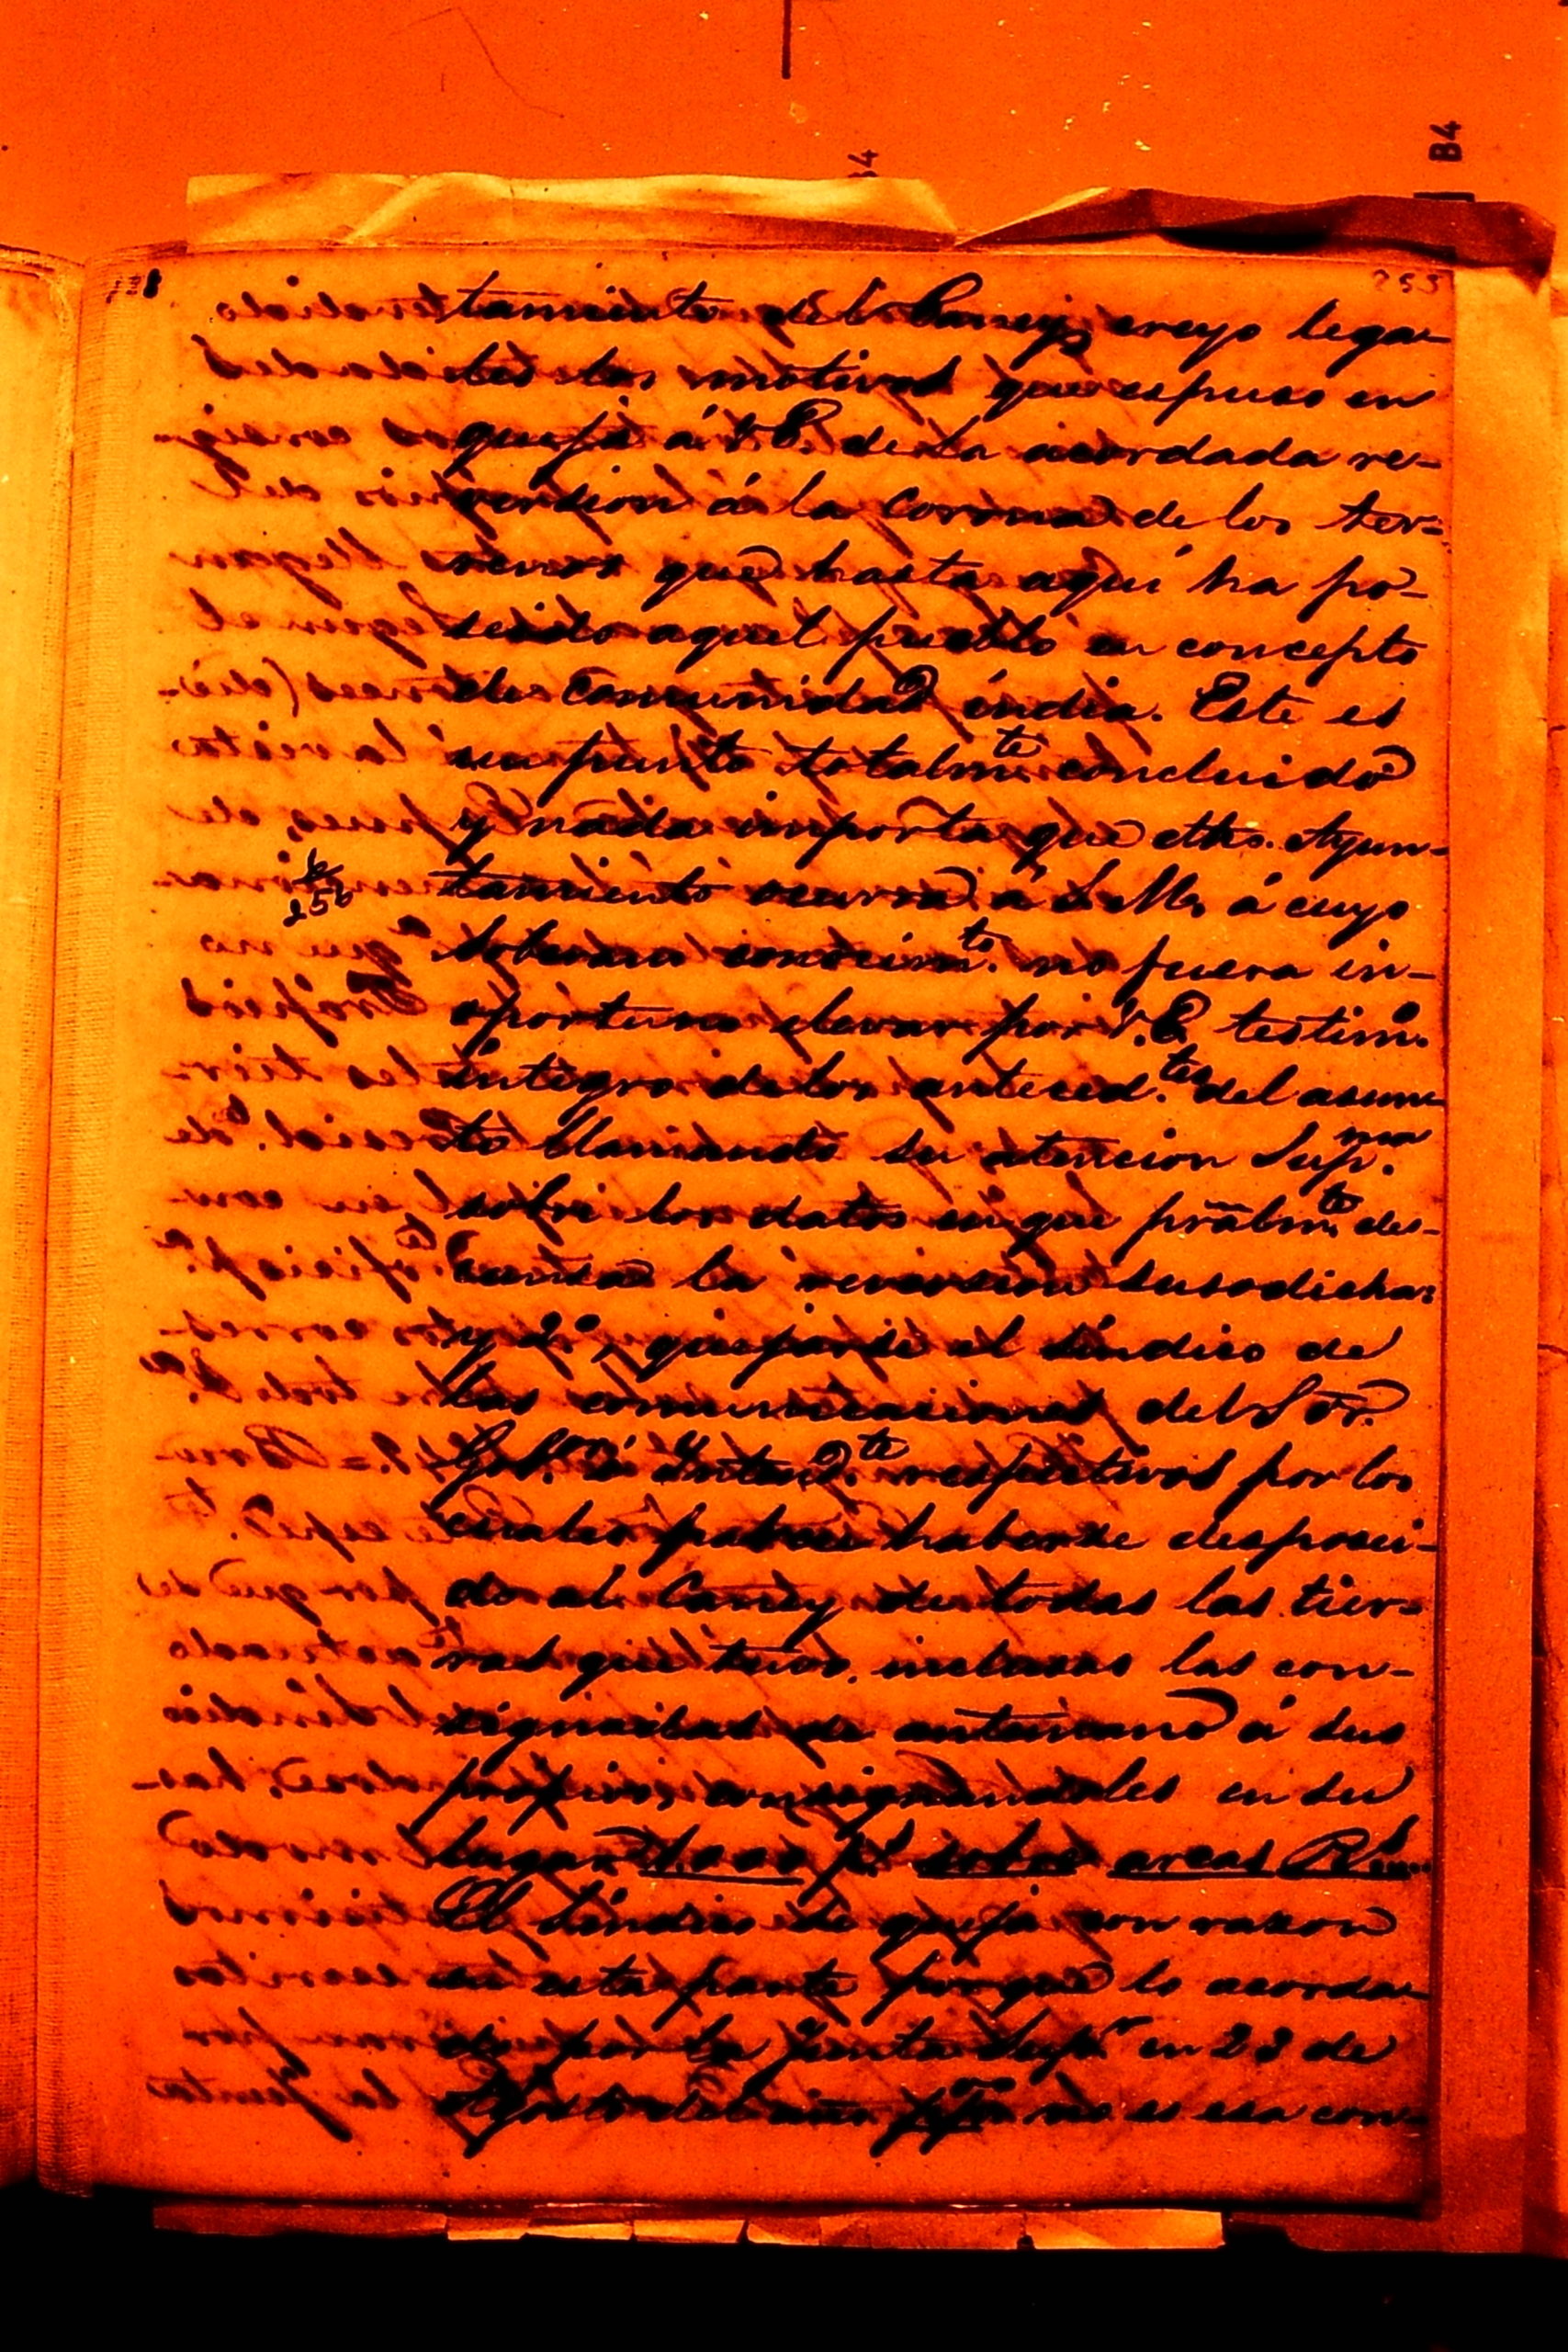 B4
255
tamiento del Caney, creyo lega-
les los motivos que espuso en
queja á V.E. de la acordada re-
version á la Corona de los ter-
renos que hasta aquí ha po-
seido aquel pueblo en concepto
de Comunidad índia. Este es
un punto totalmte concluido
y nada importa que dho. Ayun-
tamiento ocurra á S.M. á cuyo
256
soberano conocimto. no fuera in-
oportuno elevar por V.E. testimo.
íntegro de los anteced.tes del asun-
to llamando su atencion Sup.ma
sobre los datos en que prãlmte des-
cansa la reversion susodicha:
y 2º, quejarse el Síndico de
las comunicaciones del Sor.
Gob.or é Intend.te respectivos por los
cuales haberse desposei-
do al Caney de todas las tier-
ras que tuvo, inclusas las con-
signadas de antemano á sus
propios, consignandoles en su
lugar ps sobre arcas Rs.
El Síndico se queja con razon
en esta parte porque lo acorda-
do por la Junta Supr en 23 de
Agosto del año ppdo no es esa con-